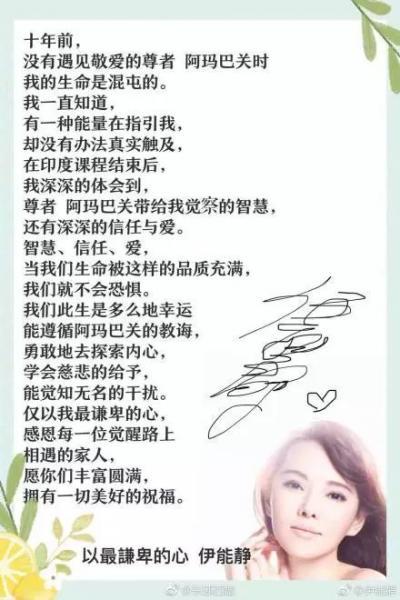 十年前，
没有遇见敬爱的尊者 阿玛巴关时
我的生命是混饨的。
我一直知道，
有一种能量在指引我，
却没有办法真实触及，
在印度课程结束后，
我深深的体会到，
尊者 阿玛巴关带给我觉察的智慧，
还有深深的信任与爱。
智慧、信任、爱，
当我们生命被这样的品质充满，
我们就不会恐惧。
我们此生是多么地幸运
能遵循阿玛巴关的教诲，
勇敢地去探索内心，
学会慈悲的给予，
能觉知无名的干扰。
仅以我最谦卑的心，
感恩每一位觉醒路上
相遇的家人，
愿你们丰富圆满，
拥有一切美好的祝福。
以最謙卑的心 伊能静
@伊能静